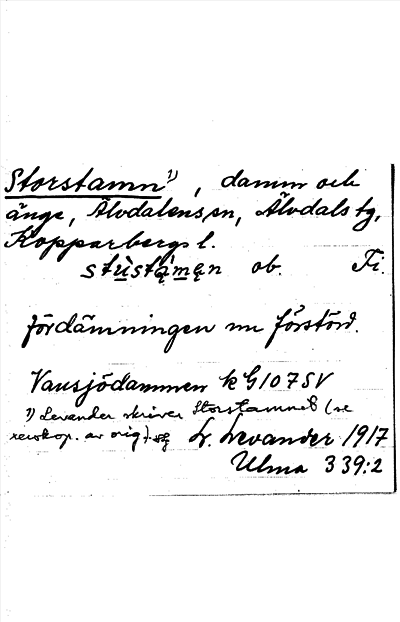 Storstamn ¹⁾, damm och
änge, Älvdalens sn, Älvdals tg,
Kopparbergs l.
stùstą̀mąn ob. Fi.
fördämningen nu förstörd.
Vansjödammen k G 107 SV
¹⁾ Levander skriver Storstamnet (se
av orig.).
L. Levander 1917
Ulma 339:2